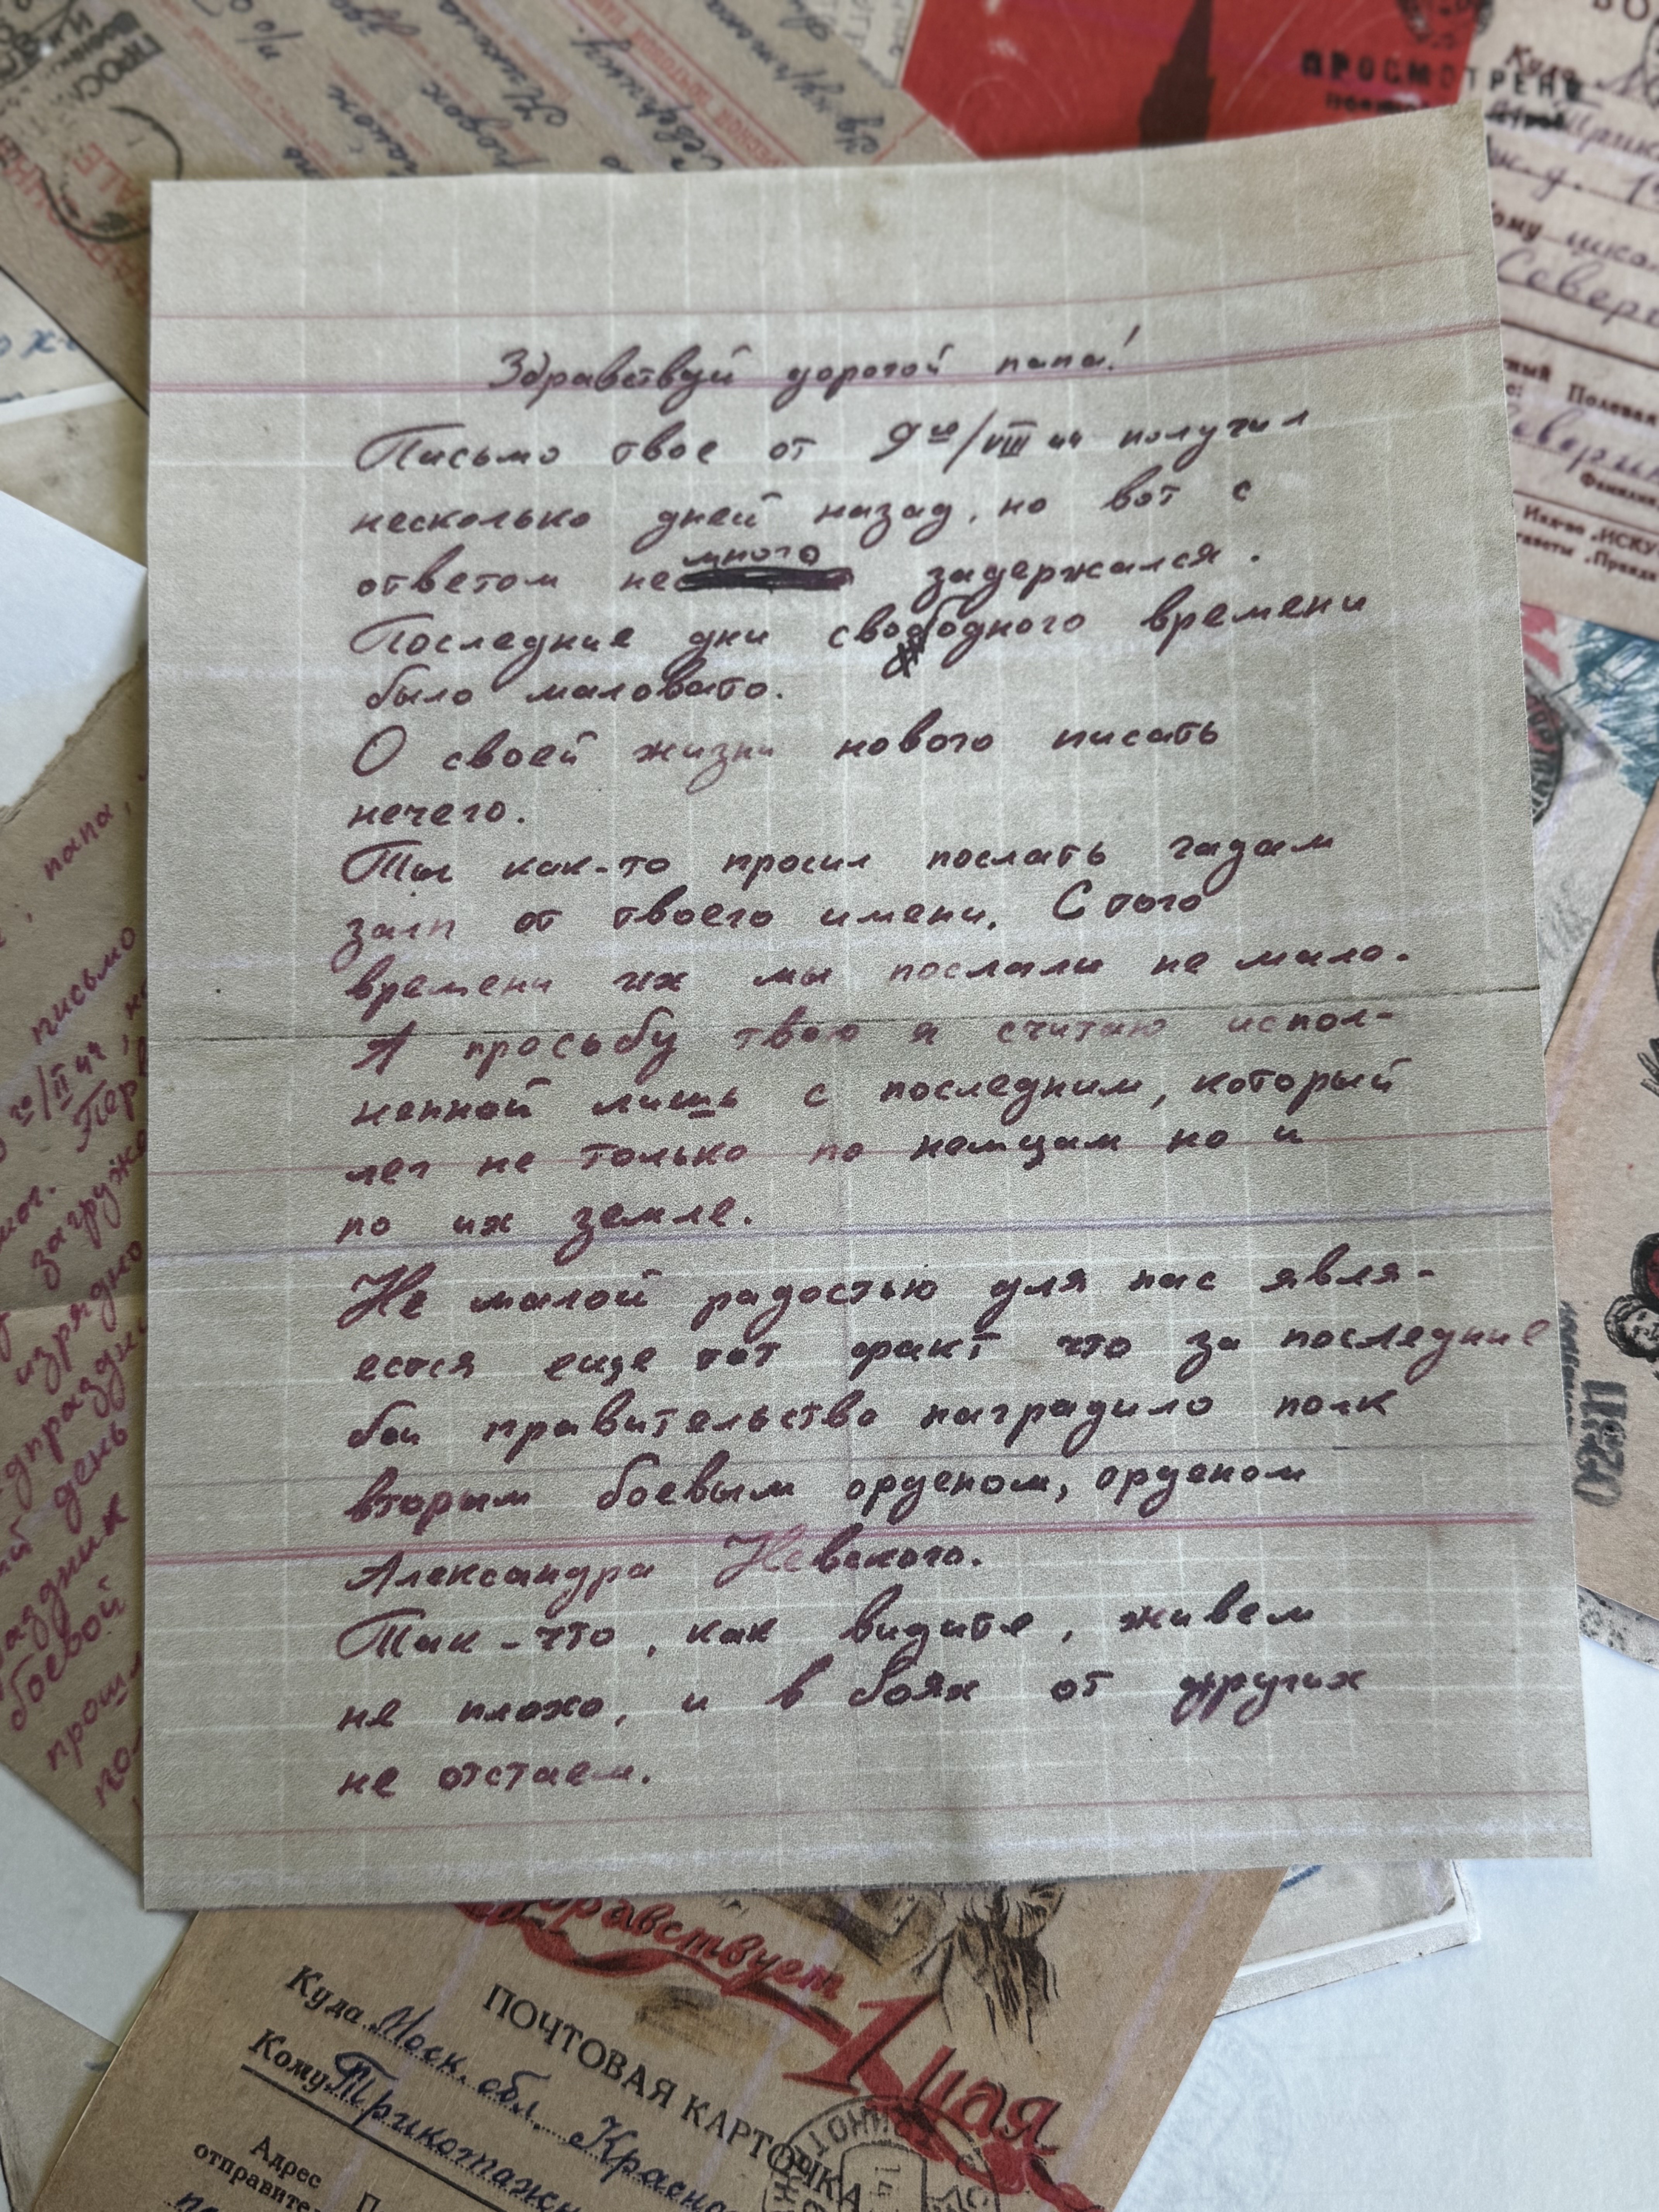 Здравствуй дорогой папа!
Письмо твое от 9го/VIII 44 получил
несколько дней назад, но вот с
ответом немного задержался.
Последние дни свободного времени
было маловато.
О своей жизни нового писать
нечего.
Ты как-то просил послать гадам
залп от твоего имени. С того
времени их мы послали не мало.
А просьбу твою я считаю испол-
ненной лишь с последним, который
лег не только по немцам но и
по их земле.
Не малой радостью для нас явля-
ется еще тот факт что за последние
бои правительство наградило полк
вторым боевым орденом, орденом
Александра Невского.
Так-что, как видите, живем
не плохо, и в боях от других
не отстаем.
папа,
письмо
го/II 44,
загруже
изрядно
день
боевой
ПРОСМОТРЕНО
Куда
Север
Полевая
Здравствует
1 Мая
ПОЧТОВАЯ КАРТОЧКА
Куда Моск. обл. Красно
Кому Трикотажн
Адрес
отправите